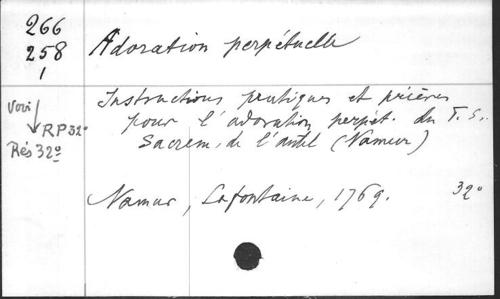 266
258
1
Adoration perpétuelle
Voir
RP 32º
Rés 32º
Instructions pratiques et prières
pour l'adoration perpét. du T. S.
Sacrem. de l'autel (Namur)
Namur, Lafontaine, 1769. 32º